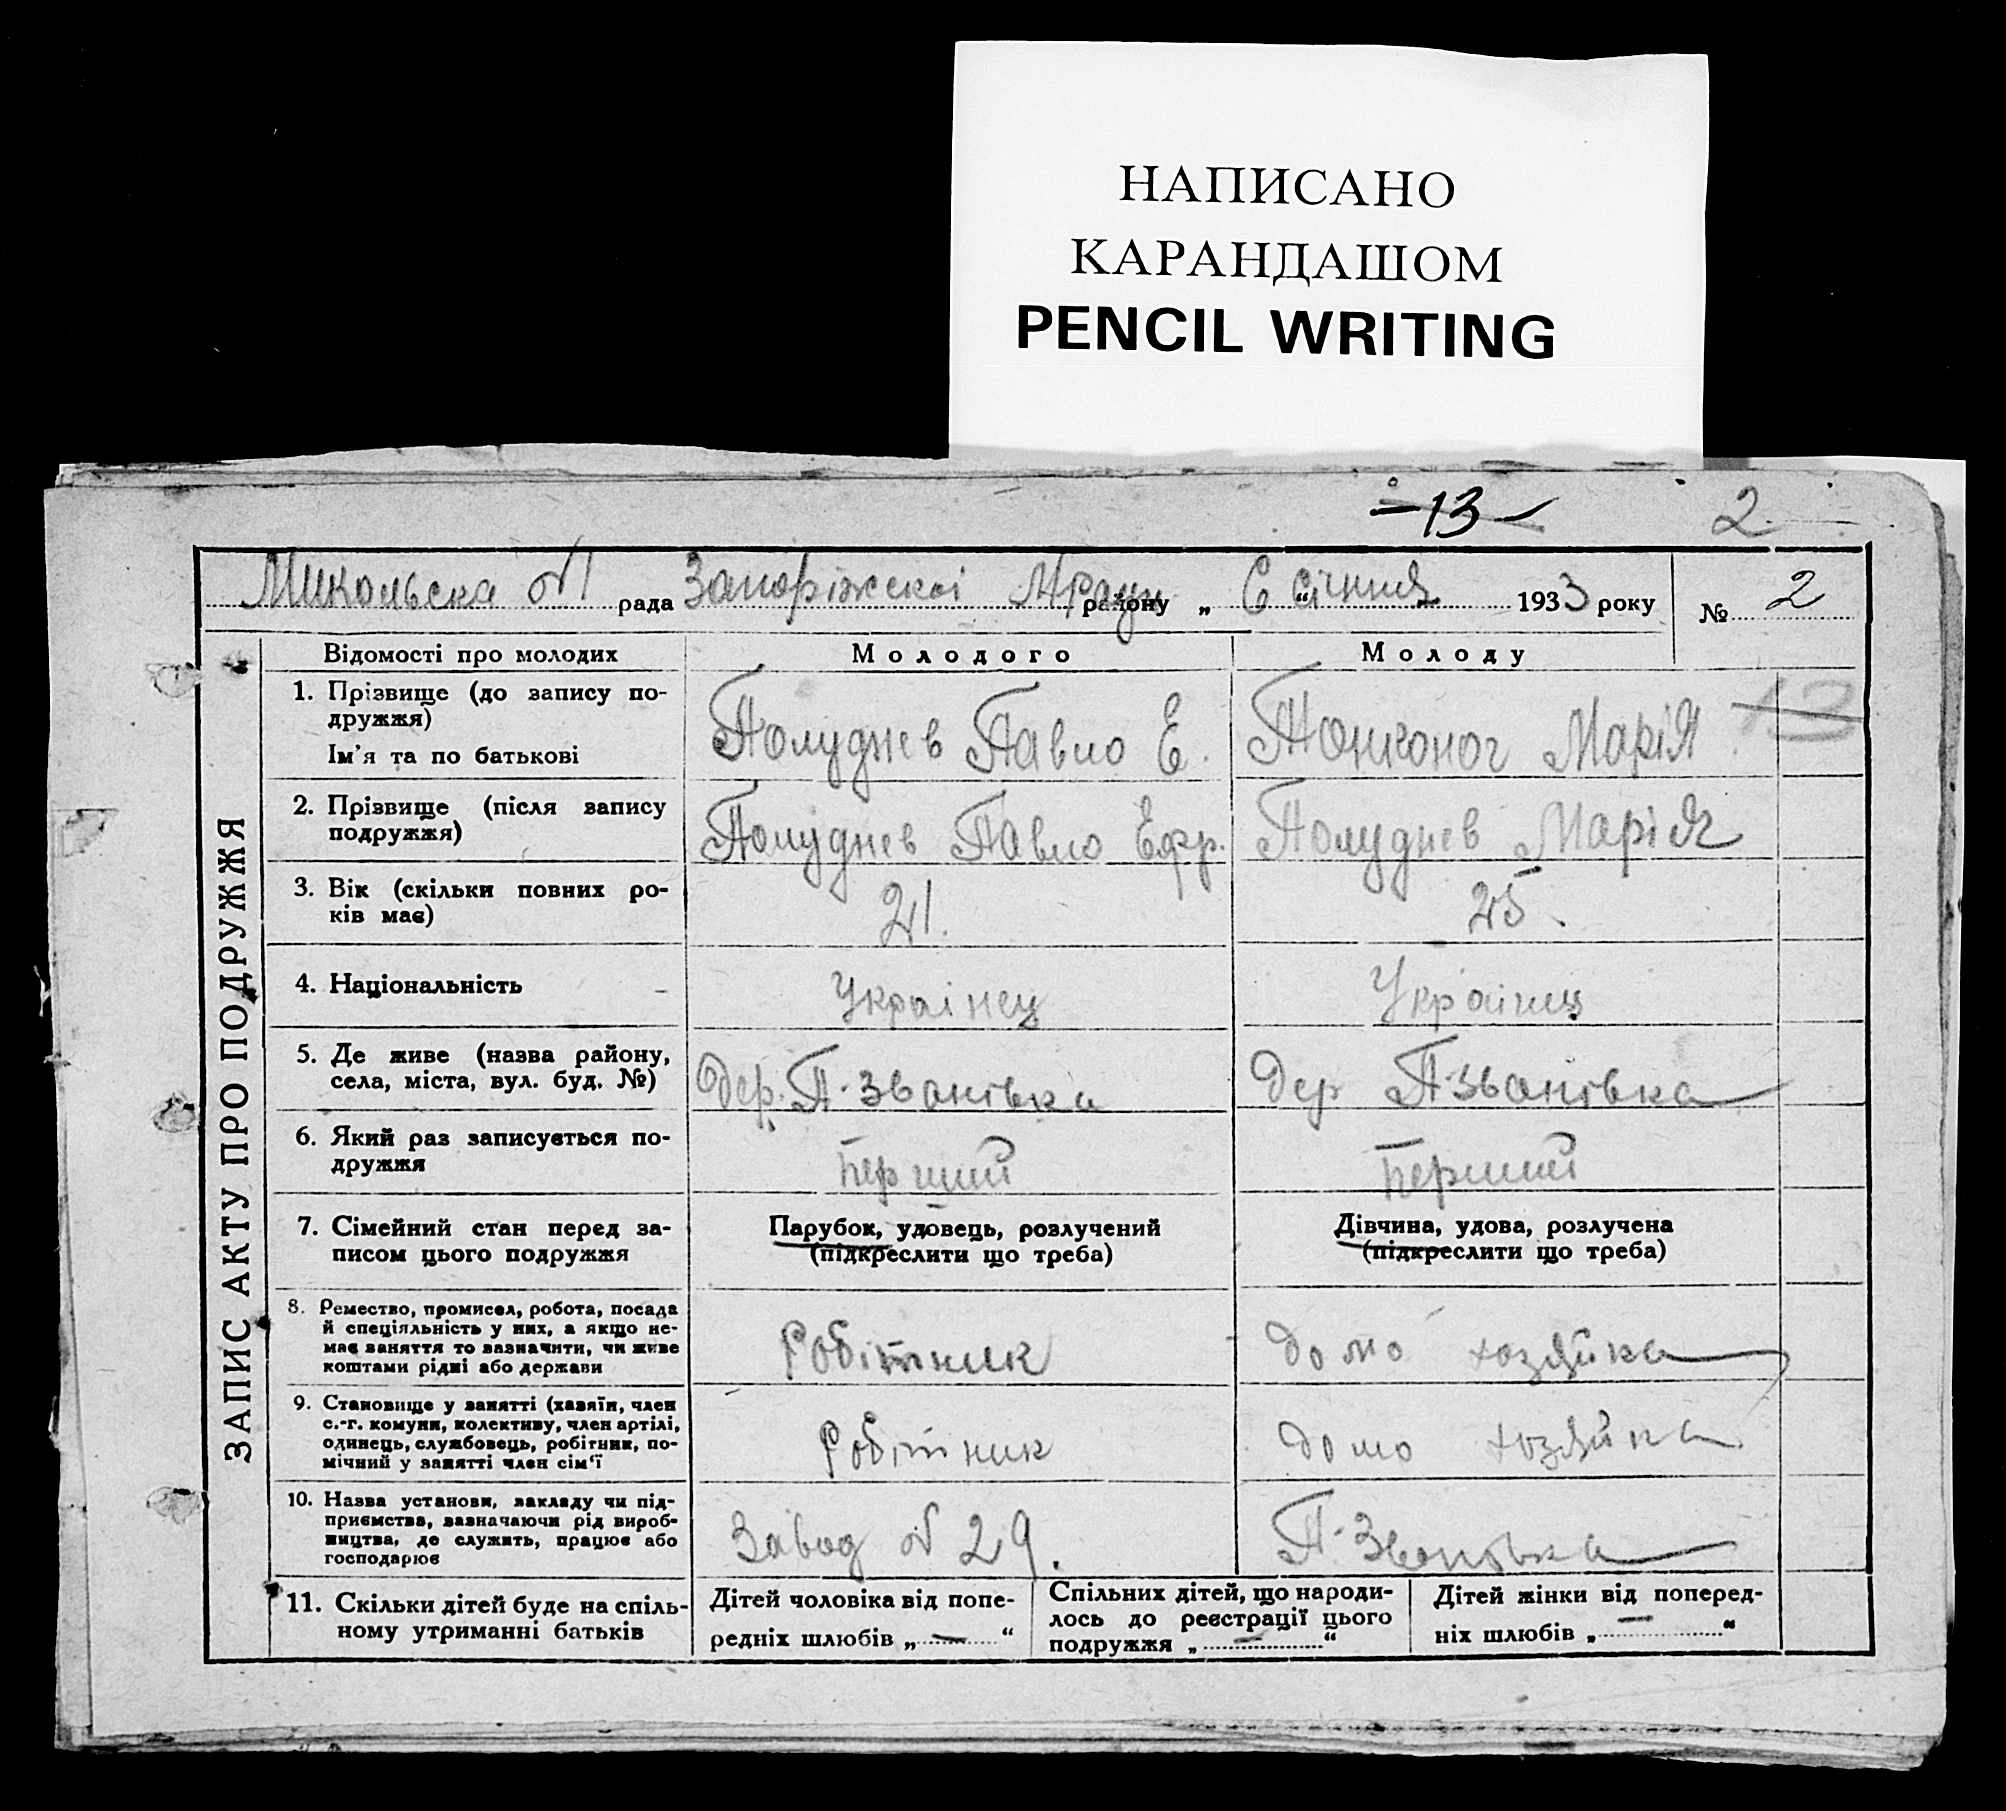 НАПИСАНО
КАРАНДАШОМ
PENCIL WRITING
-13-
2
Микольска №1 рада Запоріжскої Мрайн району „ 6 “ січния 1933 року № 2
ЗАПИС АКТУ ПРО ПОДРУЖЖЯ
Відомості про молодих
Молодого
Молоду
1. Прізвище (до запису по-
дружжя)
Ім'я та по батькові
Полуднев Павло Е.
Тонконог Марія
13
2. Прізвище (після запису
подружжя)
Полуднев Павло Ефр.
Полуднев Марія
3. Вік (скільки повних ро-
ків має)
21.
25.
4. Національність
Українец
Україниц
5. Де живе (назва району,
села, міста, вул. буд. №)
Дер. П-Званівка
Дер П-Званівка
6. Який раз записується по-
дружжя
Перший
Перший
7. Сімейний стан перед за-
писом цього подружжя
Парубок, удовець, розлучений
(підкреслити що треба)
Дівчина, удова, розлучена
(підкреслити що треба)
8. Ремество, промисел, робота, посада
й спеціяльність у них, а якщо не-
має заняття то зазначити, чи живе
коштами рідні або держави
Робітник
домо хозяйка
9. Становище у занятті (хазяїн, член
с.-г. комуни, колективу, член артілі,
одинець, службовець, робітник, по-
мічний у занятті член сім'ї
Робітник
домо хозяйка
10. Назва установи, закладу чи під-
приємства, зазначаючи рід вироб-
ництва, де служить, працює або
господарює
Завод № 29.
П-Званівка
11. Скільки дітей буде на спіль-
ному утриманні батьків
Дітей чоловіка від попе-
редніх шлюбів „ — “
Спільних дітей, що народи-
лось до реєстрації цього
подружжя „ — “
Дітей жінки від поперед-
ніх шлюбів „ — “